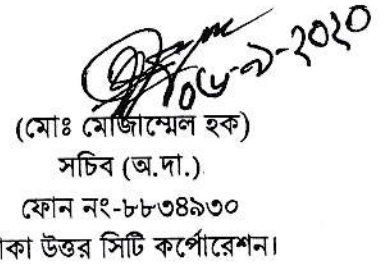 ০৬-৯-২০২০
(মোঃ মোজাম্মেল হক)
সচিব (অ.দা.)
ফোন নং-৮৮৩৪৯৩০
কা উত্তর সিটি কর্পোরেশন।